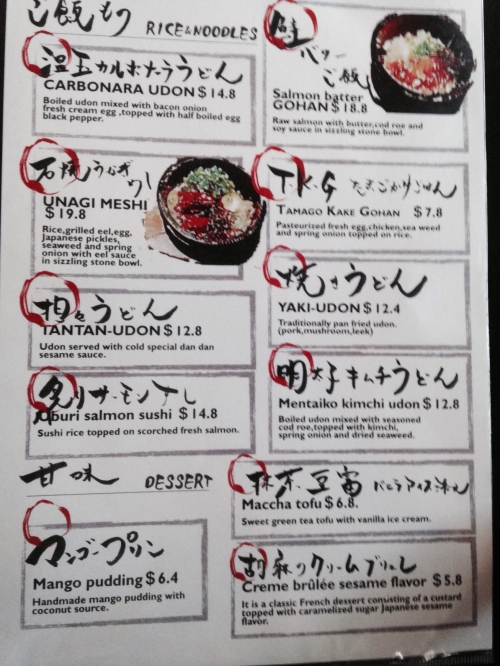 ご飯もの RICE&NOODLES
温玉カルボナーラうどん
CARBONARA UDON $14.8
Boiled udon mixed with bacon onion
fresh cream egg ,topped with half boiled egg
black pepper.
石焼うなぎ
UNAGI MESHI
$19.8
Rice,grilled eel,egg,
Japanese pickles,
seaweed and spring
onion with eel sauce
in sizzling stone bowl.
担々うどん
TANTAN-UDON $12.8
Udon served with cold special dan dan
sesame sauce.
炙りサーモン丼
Aburi salmon sushi $14.8
Sushi rice topped on scorched fresh salmon.
鮭
バター
ご飯
Salmon batter
GOHAN $18.8
Raw salmon with butter,cod roe and
soy sauce in sizzling stone bowl.
T.K.G たまごかけごはん
TAMAGO KAKE GOHAN $7.8
Pasteurized fresh egg,chicken,sea weed
and spring onion topped on rice.
焼きうどん
YAKI-UDON $12.4
Traditionally pan fried udon.
(pork,mushroom,leek)
明太子キムチうどん
Mentaiko kimchi udon $12.8
Boiled udon mixed with seasoned
cod roe,topped with kimchi,
spring onion and dried seaweed.
甘味 DESSERT
マンゴープリン
Mango pudding $6.4
Handmade mango pudding with
coconut source.
抹茶豆富 バニラアイス添え
Maccha tofu $6.8.
Sweet green tea tofu with vanilla ice cream.
胡麻のクリームブリュレ
Creme brûlée sesame flavor $5.8
It is a classic French dessert consisting of a custard
topped with caramelized sugar Japanese sesame
flavor.